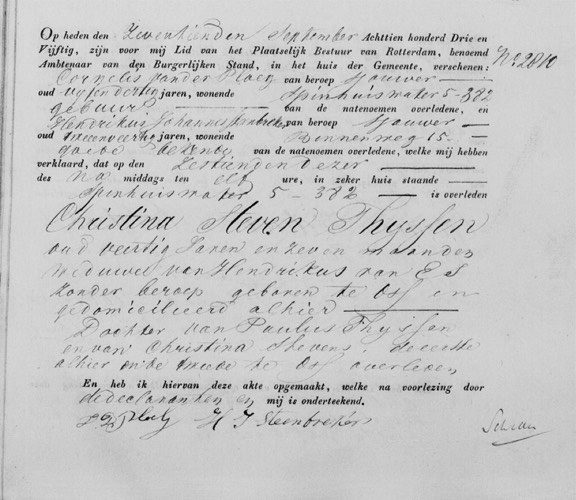 Op heden den Zeventienden September Achttien honderd Drie en
Vijftig, zijn voor mij Lid van het Plaatselijk Bestuur van Rotterdam, benoemd
Ambtenaar van den Burgerlijken Stand, in het huis der Gemeente, verschenen: No 2810
Cornelis van der Ploeg van beroep Sjouwer
oud vijfendertig jaren, wonende Spinhuiswater 5-382
gebuur van de natenoemen overledene, en
Hendrikus Johannes Steenbreker van beroep Sjouwer
oud jaren, wonende Binnenweg 15
goede bekende van de natenoemen overledene, welke mij hebben
verklaard, dat op den Zestienden dezer
des na middags ten elf ure, in zeker huis staande
Spinhuiswater 5-382 is overleden
Christina Steven Thyssen
oud veertig Jaren en zeven maanden
weduwe van Hendrikus van Es
zonder beroep geboren te Oss en
gedomicilieerd alhier
Dochter van Paulus Thyssen
en van Christina Stevens, de eerste
alhier en de twede te Oss overleden
En heb ik hiervan deze akte opgemaakt, welke na voorlezing door
de declaranten en mij is onderteekend.
Ploeg H J Steenbreker